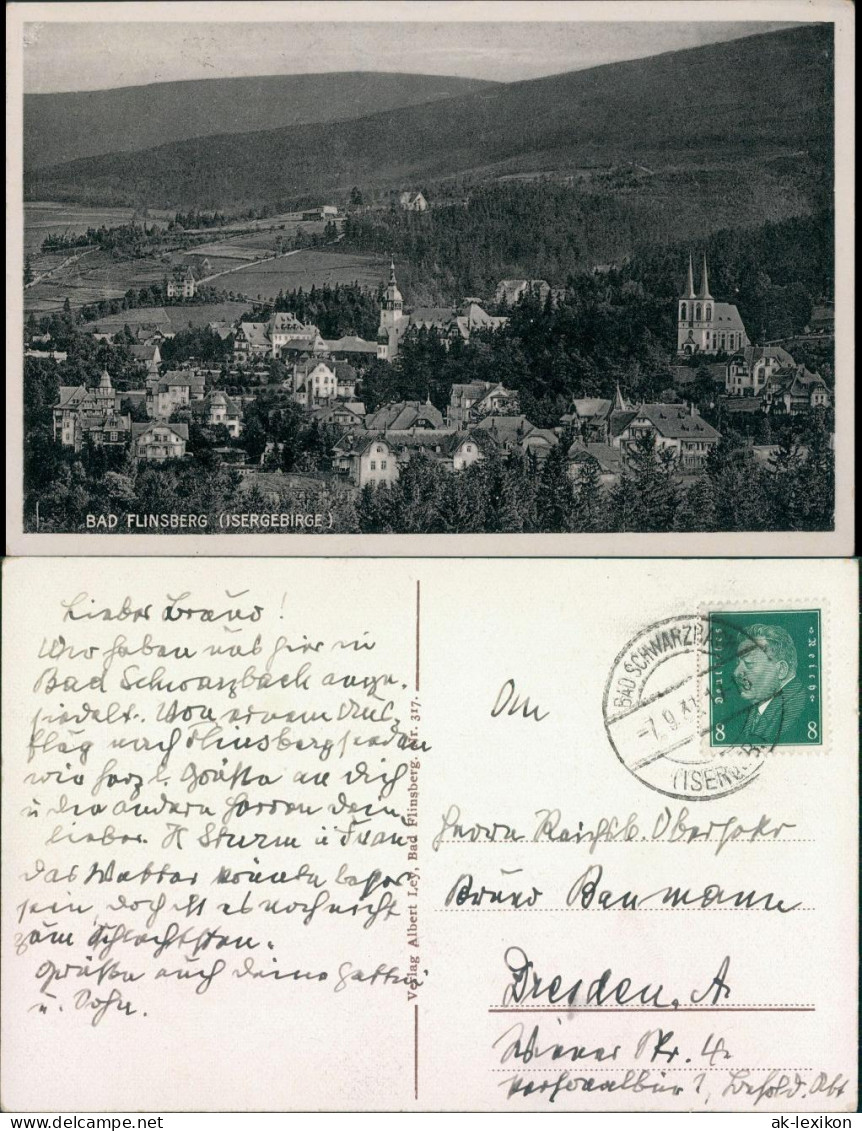 BAD FLINSBERG (ISERGEBIRGE)
Lieber Bruno!
Wir haben uns hier in
Bad Schwarzbach ange-
siedelt. Von einem Aus-
flug nach Flinsberg senden
wir herzl. Grüße an Dich
u die andern Herren Dein
lieber H Sturm u Frau
das Wetter könnte besser
sein, doch ist es noch nicht
zum Schlechtsten.
Grüße auch deine Gattin
u. Sohn.
Verlag Albert Ley, Bad Flinsberg. Nr. 317.
BAD SCHWARZBACH
-7.9.31
(ISERGEB.)
Deutsches Reich
8 8
An
Herrn Reichsb. Obersekr
Bruno Baumann
Dresden, A
Wiener Str. 4
Personalbüro,
ak-lexikon